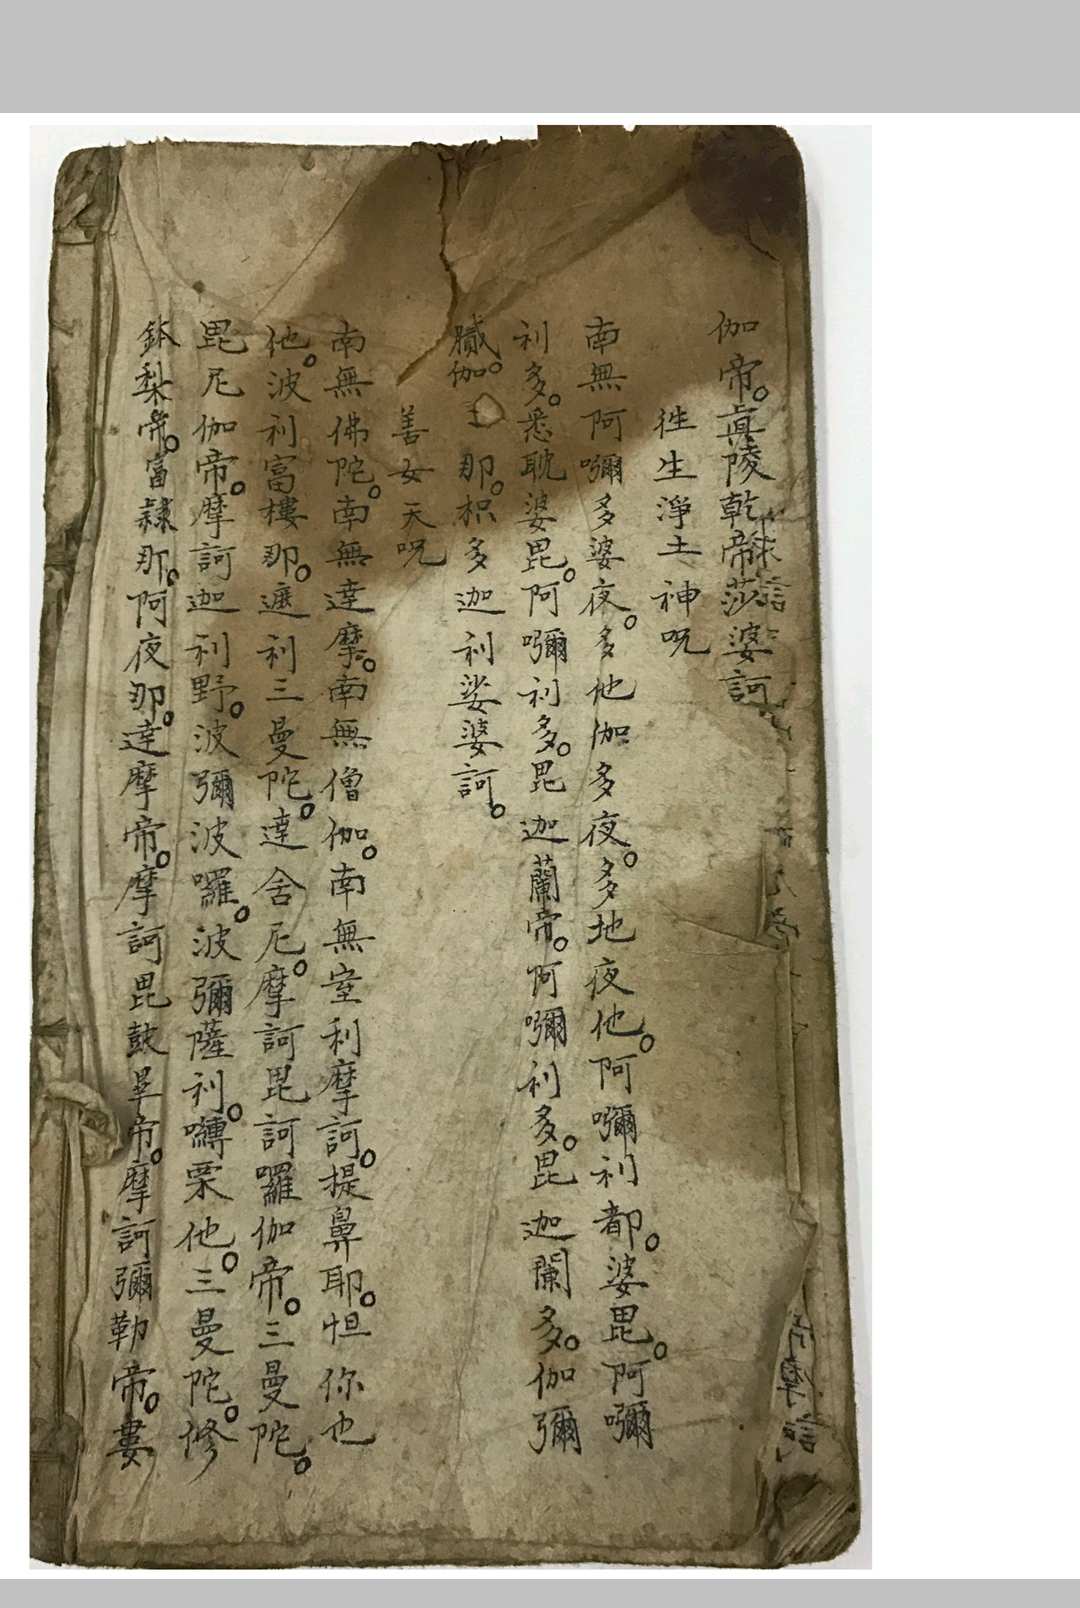 伽帝。真陵乾帝莎婆訶
往生淨土神呪
南無阿彌多婆夜。多他伽多夜。多地夜他。阿彌利都。婆毘。阿彌
利多。悉耽婆毘。阿彌利多。毘迦蘭帝。阿彌利多。毘迦闌多。伽彌
膩。伽 那。枳多迦利娑婆訶。
善女天呪
南無佛陀。南無達摩。南無僧伽。南無室利摩訶。提鼻耶。怛你也
他。波利富樓那。遮利三曼陀。達舍尼。摩訶毘訶囉伽帝。三曼陀。
毘尼伽帝。摩訶迦利野。波彌波囉。波彌薩利。嚩栗他。三曼陀。修
鉢梨帝。富隸那。阿夜那。達摩帝。摩訶毘鼓畢帝。摩訶彌勒帝。婁